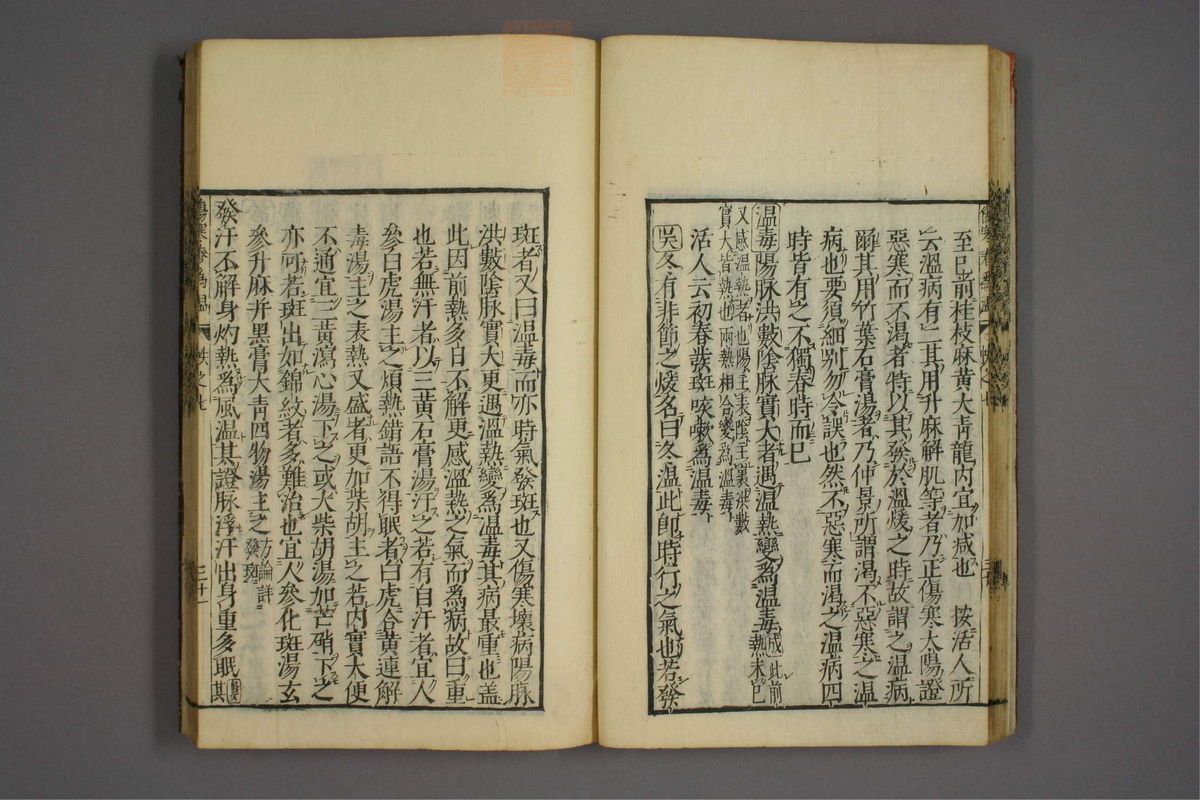 至巳前桂枝麻黄大青龍内宜加减也　按活人所
云溫病有二其用升麻解肌等者乃正傷寒大陽證
惡寒而不渴者特以其發於溫煖之時故謂之温病
爾其用竹葉石膏湯者乃仲景所謂渴不惡寒之温
病也要須細别勿令誤也然不惡寒而渴之溫病四
時皆有之不獨春時而已
温毒陽脉洪數陰脉實大者遇温熱變爲温毒成此前熱未已
又感温熱者也陽主表陰主裏洪數
實大皆熱也兩熱相合變爲温毒
活人云初春發斑咳嗽爲温毒
吳冬有非節之煖名曰冬温此即時行之氣也若發
斑者又曰溫毒而亦時氣發斑也又傷寒壞病陽脉
洪數陰脉實大更遇溫熱變爲温毒其病最重也盖
此因前熱多日不解更感溫熱之氣而爲病故曰重
也若無汗者以三黄石膏湯汗之若有自汗者宜人
參白虎湯主之煩熱錯語不得眠者白虎合黄連解
毒湯主之表熱又盛者更加柴胡主之若内實大便
不通宜三黄瀉心湯下之或大柴胡湯加芒硝下之
亦可若斑出如錦紋者多難治也宜人參化斑湯玄
參升麻并黒膏大青四物湯主之方論詳發斑
發汗不解身灼熱爲風温其證脉浮汗出身重多眠
傷寒春爲温　帙之七　三十一